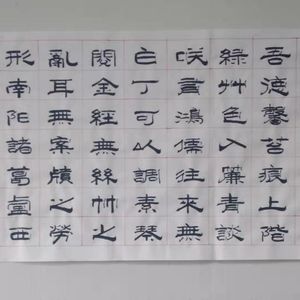 吾德馨苔痕上階
綠艸色入簾青談
咲有鴻儒往來無
白丁可以調素琴
閱金經無絲竹之
亂耳無案牘之勞
形南陽諸葛盧西